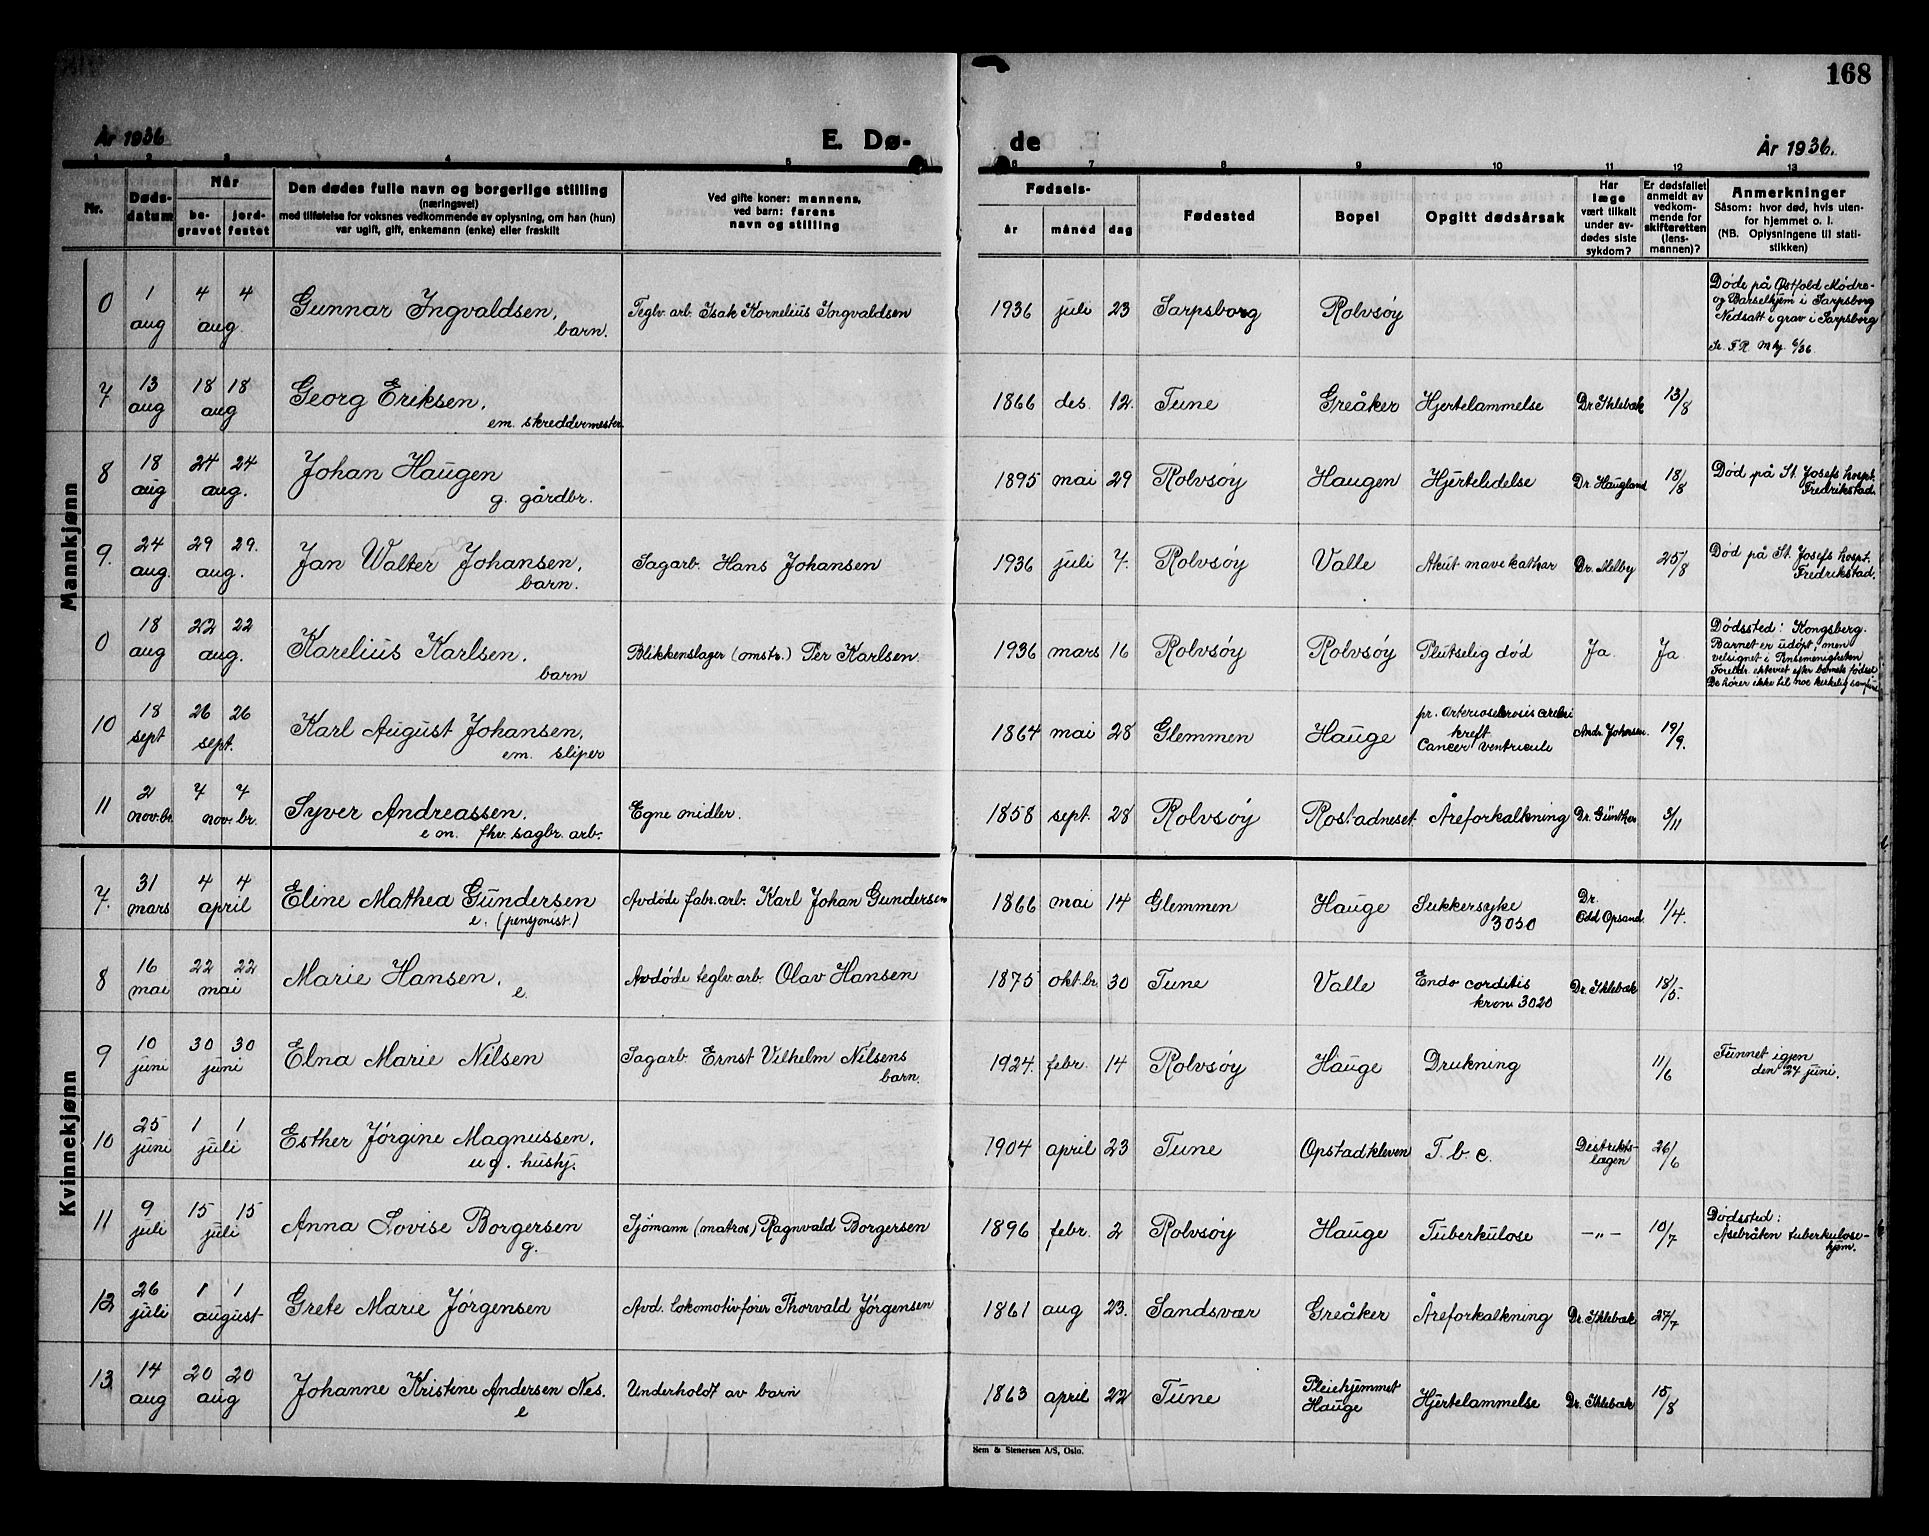 168
År 1936
E. Dø-
de
År 1936.
1 2 3 4 5 6 7 8 9 10 11 12 13
Nr.
Døds-
datum
Når
be-
gravet
jord-
festet
Den dødes fulle navn og borgerlige stilling
(næringsvei)
med tilføielse for voksnes vedkommende av oplysning, om han (hun)
var ugift, gift, enkemann (enke) eller fraskilt
Ved gifte koner: mannens,
ved barn: farens
navn og stilling
Fødsels-
år måned dag
Fødested
Bopel
Opgitt dødsårsak
Har
læge
vært tilkalt
under av-
dødes siste
sykdom?
Er dødsfallet
anmeldt av
vedkom-
mende for
skifteretten
(lens-
mannen)?
Anmerkninger
Såsom: hvor død, hvis uten-
for hjemmet o. l.
(NB. Oplysningene til stati-
stikken)
Mannkjønn
0 1 aug 4 4 aug. Gunnar Ingvaldsen, barn. Teglv. arb. Isak Kornelius Ingvaldsen 1936 juli 23 Sarpsborg Rolvsöy
Døde på Østfold Mødre-
og Barselhjem i Sarpsborg
Nedsatt i grav i Sarpsborg
Se. F. R. Mkj. 6/36.
7 13 aug 18 18 aug Georg Eriksen, em. skreddermester. 1866 des. 12. Tune Greåker Hjertelammelse Dr. Ihlebæk 13/8
8 18 aug 24 24 aug. Johan Haugen g. gårdbr. 1895 mai 29 Rolvsöy Haugen Hjertelidelse Dr. Haugland 18/8
Død på St. Josefs hospt.
Fredrikstad.
9. 24 aug. 29 29. aug. Jan Walter Johansen, barn. Sagarb. Hans Johansen 1936 juli 7. Rolvsöy Valle Akut mavekathar Dr. Melby 25/8
Død på St. Josefs hospt.
Fredrikstad.
0 18 aug 22 22 aug. Karelius Karlsen, barn Blikkenslager (omstr.) Per Karlsen. 1936 mars 16 Rolvsöy Rolvsöy Plutselig död Ja Ja
Dødssted: Kongsberg.
Barnet er udøpt, men
velsignet i Pinsemenigheten
Foreldr. ekteviet efter barnets fødsel
De hører ikke til noe kirkelig samfund
10 18 sept 26 26 sept. Karl August Johansen, em. sliper 1864 mai 28 Glemmen Hauge
pr. arteriosclerosis cerebri
kreft
Cancer ventriculi
Andr. Johnsen. 19/9.
11 2 nov.br. 4 4 nov.br. Syver Andreassen. em. fhv. sagbr. arb. Egne midler. 1858 sept. 28 Rolvsöy Rostadneset. Åreforkalkning Dr. Günther 3/11
Kvinnekjønn
7. 31 mars 4 4 april Eline Mathea Gundersen e. (pensjonist.) Avdøde fabr. arb. Karl Johan Gundersen 1866 mai 14 Glemmen Hauge Sukkersyke 3050 Dr. Odd Opsand. 1/4.
8 16 mai 22 22 mai Marie Hansen. e. Avdøde teglv. arb. Olav Hansen 1875 okt.br. 30 Tune Valle Endo corditis kron. 3020 Dr. Ihlebæk 18/5.
9 10 juni 30 30 juni Elna Marie Nilsen Sagarb. Ernst Vilhelm Nilsens barn. 1924. febr. 14 Rolvsöy Hauge Drukning 11/6
Funnet igjen
den 24 juni.
10 25 juni 1 1 juli Esther Jörgine Magnussen. ug. hushj. 1904 april 23 Tune Opstadkleven T. b. c. Destrikts-lægen 26/6
11 9 juli 15 15 juli Anna Lovise Borgersen g. Sjömann (matros) Ragnvald Borgersen 1896 febr. 2 Rolvsöy Hauge Tuberkulose —„— 10/7
Dødssted:
Åsebråten tuberkulose-
hjem.
12 26 juli 1 1 august Grete Marie Jörgensen Avd. lokomotivfører Thorvald Jörgensen 1861 aug 23. Sandsvær Greåker Åreforkalkning Dr. Ihlebæk 27/7
13 14 aug 20 20 aug Johanne Kristine Andersen Nes. e Underholdt av barn 1863 april 22 Tune Pleiehjemmet Hauge Hjertelammelse Dr. Ihlebæk 15/8
Sem & Stenersen A/S, Oslo.